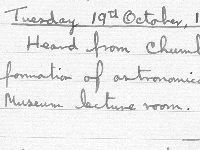 Tuesday 19th October, 1
Heard from Chum
formation of astronomica
Museum lecture room.